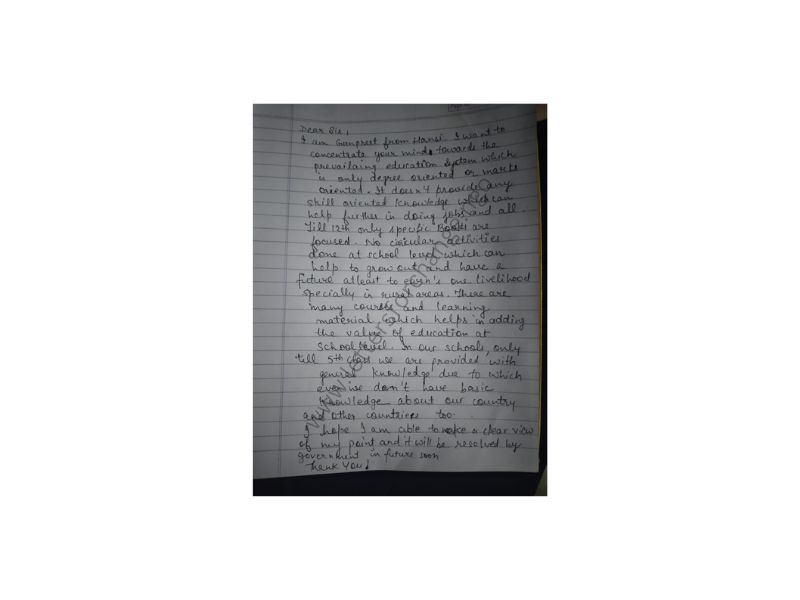 Dear Sir,
I am Gunpreet from Hansi. I want to
concentrate your minds towards the
prevailaing education system which
is only degree oriented or marks
oriented. It doesn't provide any
skill oriented knowledge which can
help further in doing jobs and all.
Till 12th only specific Books are
focused. No cuicular activities
done at school level which can
help to grow out and have a
future atleast to earn's one livelihood
specially in rural areas. There are
many courses and learning
material which helps in adding
the value of education at
school level. In our schools, only
till 5th class we are provided with
general knowledge due to which
even we don't have basic
knowledge about our country
and other countries too.
I hope I am able to make a clear view
of my point and it will be resolved by
government in future soon
Thank You!